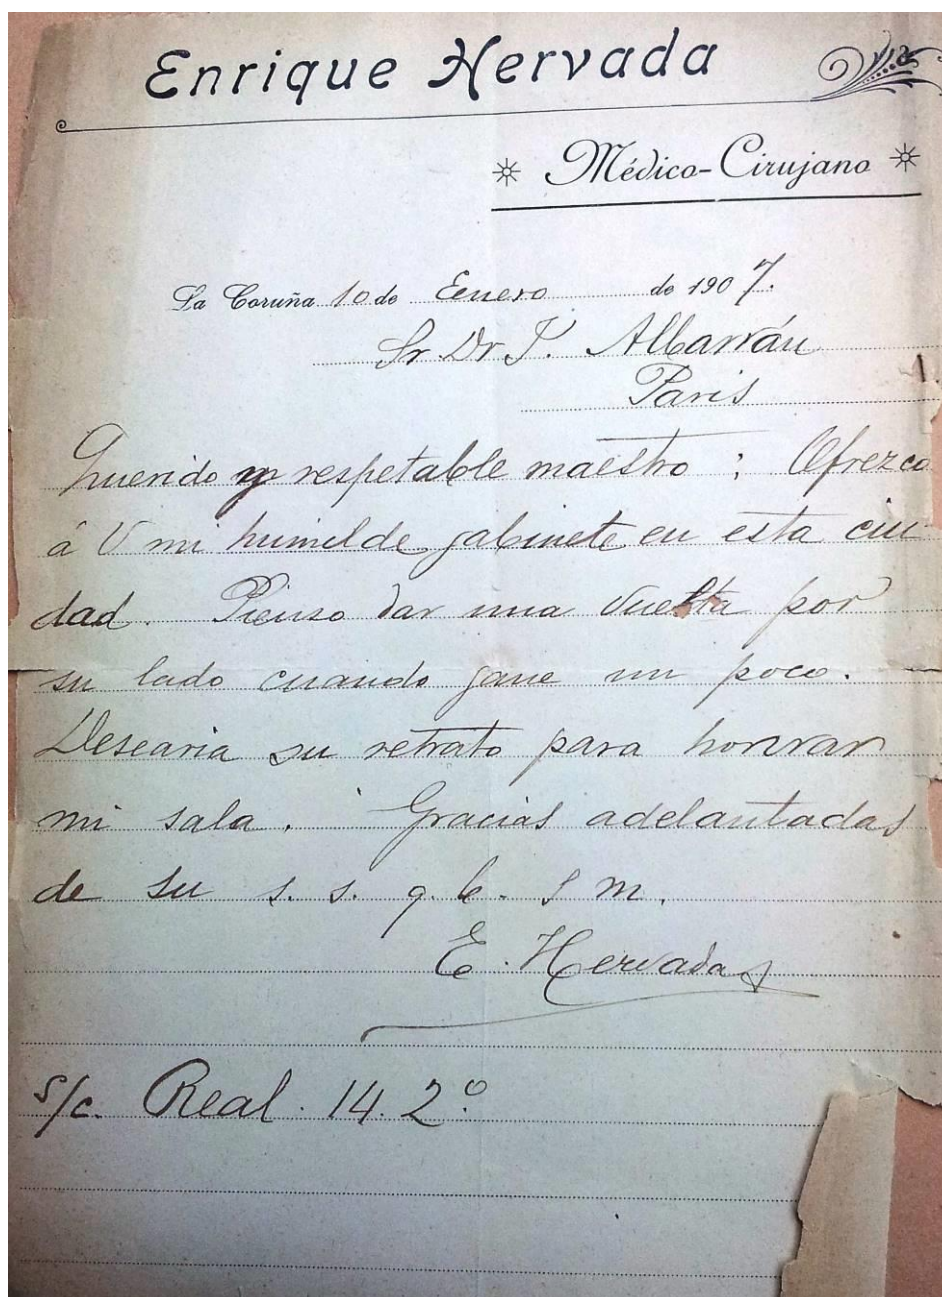 Enrique Hervada
Médico-Cirujano
La Coruña 10 de Enero de 1907.
Sr. Dr. J. Albarrán
Paris
Querido y respetable maestro: Ofrezco
á V mi humilde gabinete en esta ciu
dad. Pienso dar una vuelta por
su lado cuando gane un poco.
Desearia su retrato para honrar
mi sala. Gracias adelantadas
de su s. s. q. b. s m.
E. Hervada
s/c. Real. 14. 2º.